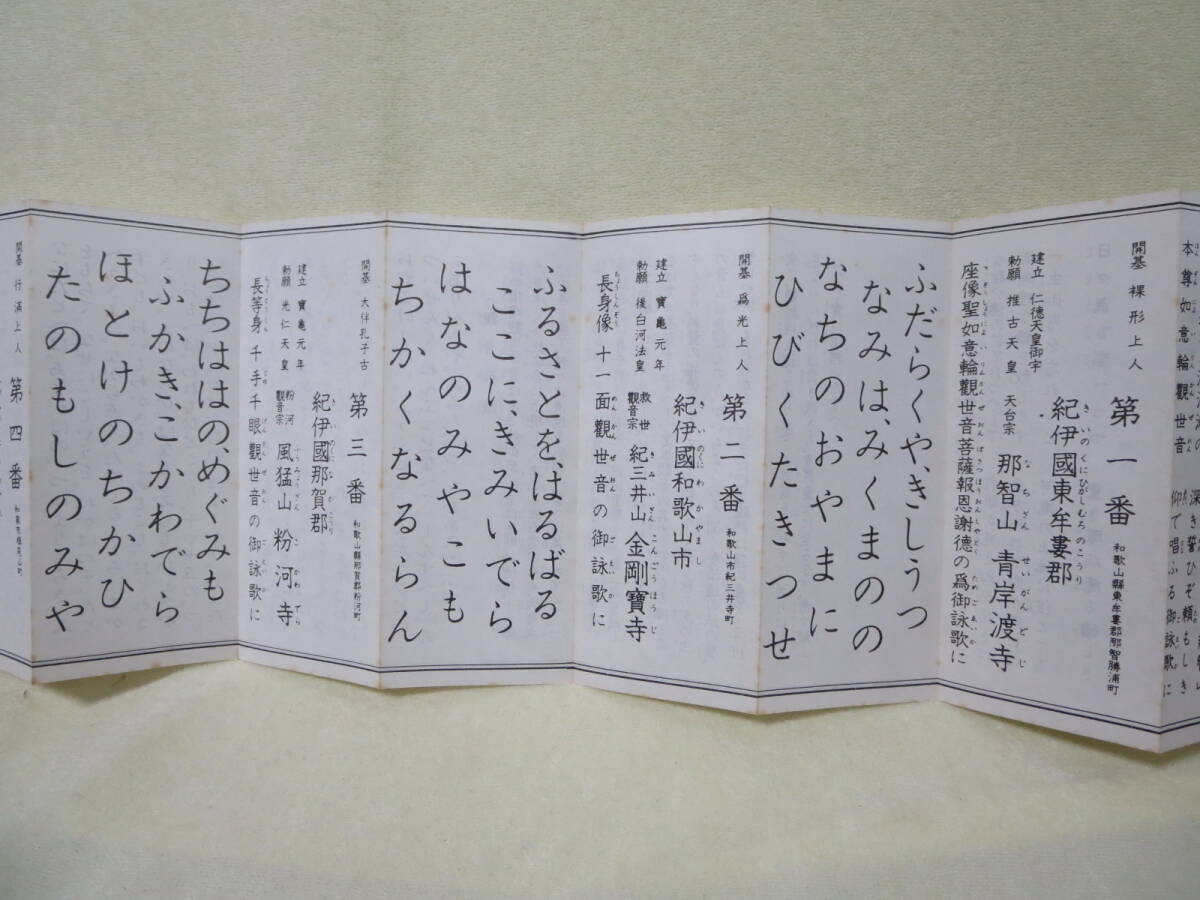 本尊如意輪觀世音 深き誓ひぞ頼もしき
仰で唱ふる御詠歌に
開基 裸形上人 第一番 和歌山縣東牟婁郡那智勝浦町
紀伊國東牟婁郡
建立 仁徳天皇御宇
勅願 推古天皇 天台宗 那智山 青岸渡寺
座像聖如意輪觀世音菩薩報恩謝徳の爲御詠歌に
ふだらくや、きしうつ
なみは、みくまのの
なちのおやまに
ひびくたきつせ
開基 爲光上人 第二番 和歌山市紀三井寺町
紀伊國和歌山市
建立 寶亀元年
勅願 後白河法皇 救世觀音宗 紀三井山 金剛寶寺
長身像 十一面觀世音の御詠歌に
ふるさとを、はるばる
ここに、きみいでら
はなのみやこも
ちかくなるらん
開基 大伴孔子古 第三番 和歌山縣那賀郡粉河町
紀伊國那賀郡
建立 寶亀元年
勅願 光仁天皇 粉河觀音宗 風猛山 粉河寺
長等身 千手千眼觀世音の御詠歌に
ちちははの、めぐみも
ふかき、こかわでら
ほとけのちかひ
たのもしのみや
開基 行満上人 第四番